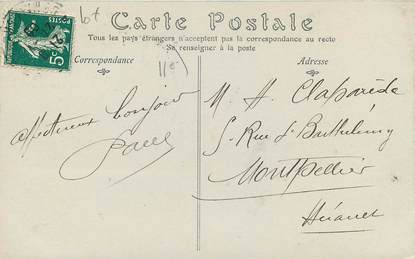 Carte Postale
Tous les pays étrangers n'acceptent pas la correspondance au recto
Se renseigner à la poste
Correspondance
Adresse
affectueux bonjour
Paul
M. H. Claparède
5. Rue St Barthélemy
Montpellier
Hérault
5c